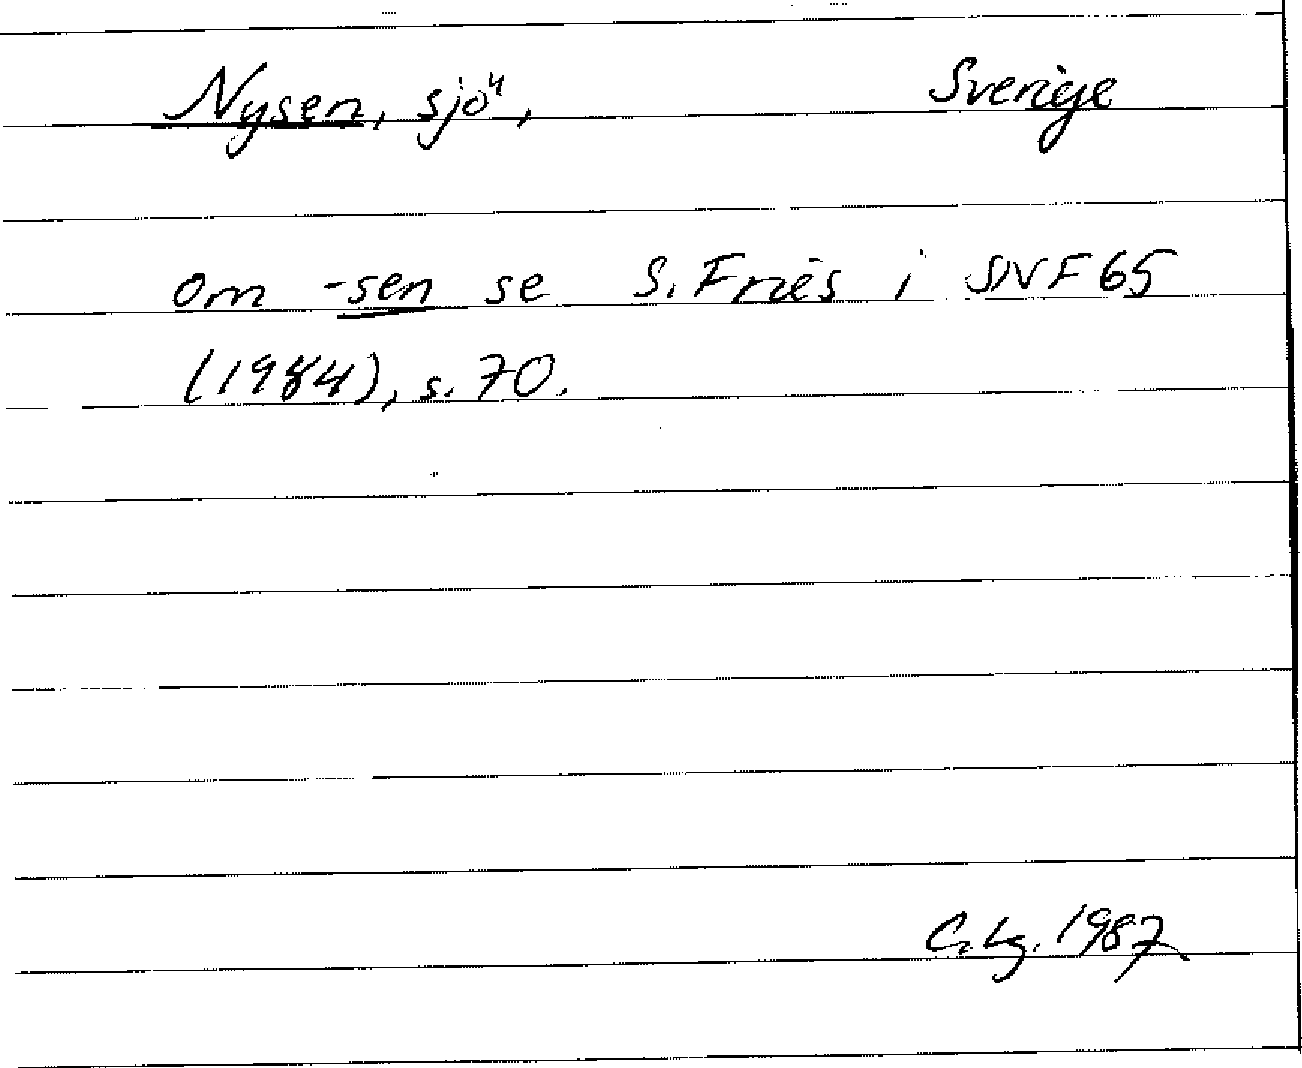 Nysen, sjö, Sverige
om -sen se S. Fries i SNF 65
(1984), s. 70.
C. Lg. 1987